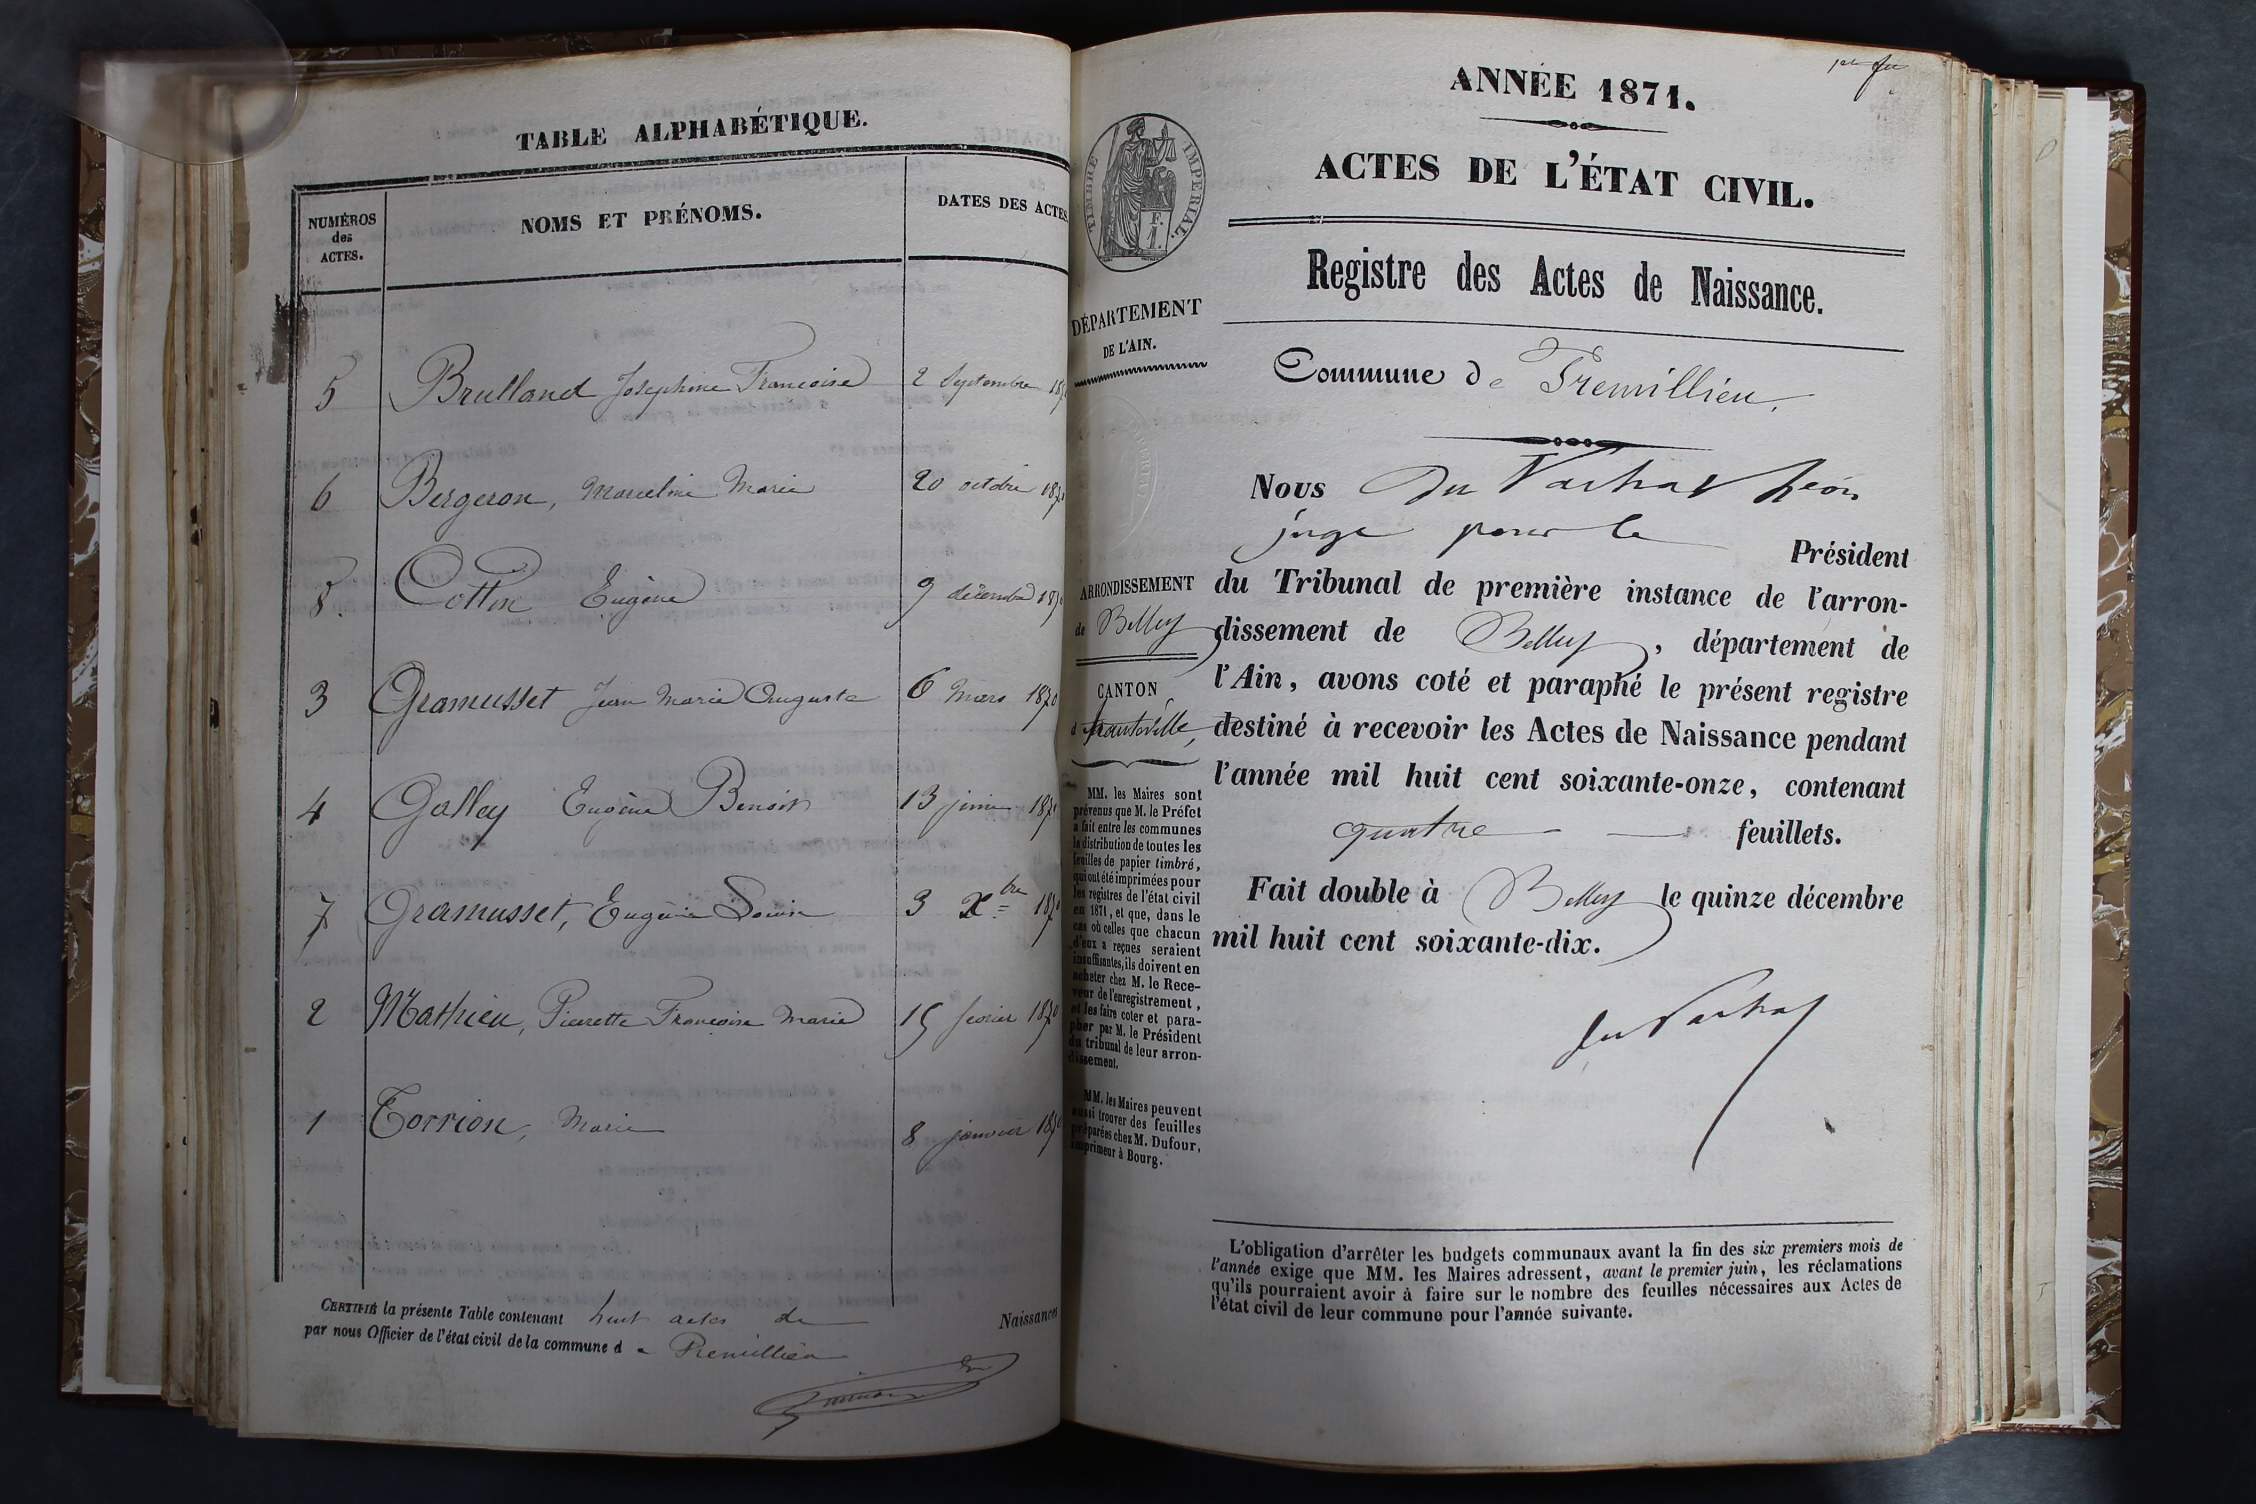 TABLE ALPHABÉTIQUE.
NUMÉROS des ACTES.
NOMS ET PRÉNOMS.
DATES DES ACTES
5 Brulland Josephine Francoise 2 Septembre 1870
6 Bergeron, Marceline Marie 20 octobre 1870
8. Cottin Eugène 9 décembre 1870
3 Gramusset Jean Marie Auguste 6 Mars 1870
4 Galley Eugène Benoit 13 juin 1870
7 Gramusset, Eugénie Louise 3 Xbre 1870
2 Mathieu, Pierrette Françoise Marie 15 fevrier 1870
1 Torrion, Marie 8 janvier 1870
CERTIFIÉ la présente Table contenant huit actes de Naissances
par nous Officier de l'état civil de la commune de Premillieu
1er
ANNÉE 1871.
ACTES DE L'ÉTAT CIVIL.
TIMBRE IMPÉRIAL.
Registre des Actes de Naissance.
DÉPARTEMENT
DE L'AIN.
Commune de Premillieu.
Nous Du Vachat Léon
juge pour le Président
du Tribunal de première instance de l'arron-
dissement de Belley, département de
l'Ain, avons coté et paraphé le présent registre
destiné à recevoir les Actes de Naissance pendant
l'année mil huit cent soixante-onze, contenant
quatre feuillets.
Fait double à Belley le quinze décembre
mil huit cent soixante-dix.
du Vachat
ARRONDISSEMENT
de Belley
CANTON
d'hauteville,
MM. les Maires sont
prévenus que M. le Préfet
a fait entre les communes
la distribution de toutes les
feuilles de papier timbré,
qui ont été imprimées pour
les registres de l'état civil
en 1871, et que, dans le
cas où celles que chacun
d'eux a reçues seraient
insuffisantes, ils doivent en
acheter chez M. le Rece-
veur de l'enregistrement,
et les faire coter et para-
pher par M. le Président
du tribunal de leur arron-
dissement.
MM. les Maires peuvent
aussi trouver des feuilles
préparées chez M. Dufour,
imprimeur à Bourg.
L'obligation d'arrêter les budgets communaux avant la fin des six premiers mois de
l'année exige que MM. les Maires adressent, avant le premier juin, les réclamations
qu'ils pourraient avoir à faire sur le nombre des feuilles nécessaires aux Actes de
l'état civil de leur commune pour l'année suivante.